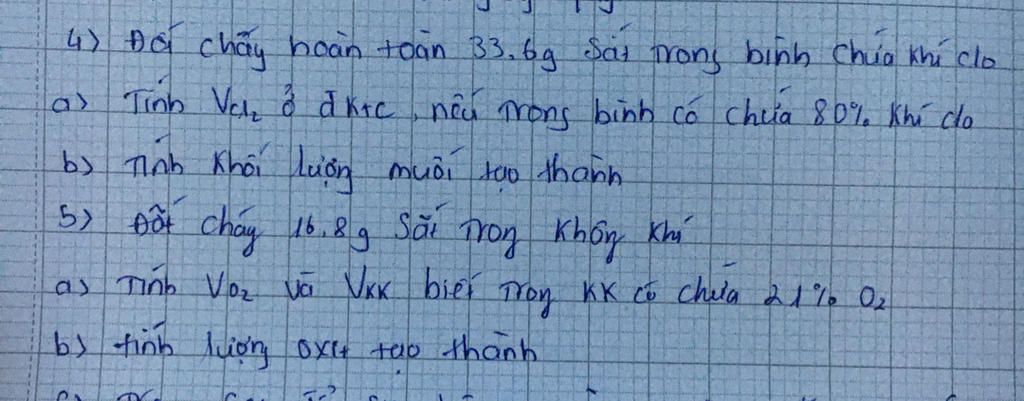 4) Đốt cháy hoàn toàn 33,6g Sắt trong bình chứa khí clo
a) Tính VCl₂ ở đktc, nếu trong bình có chứa 80% khí clo
b) Tính khối lượng muối tạo thành
5) Đốt cháy 16,8g Sắt trong không khí
a) Tính VO₂ và VKK biết trong KK có chứa 21% O₂
b) tính lượng oxit tạo thành